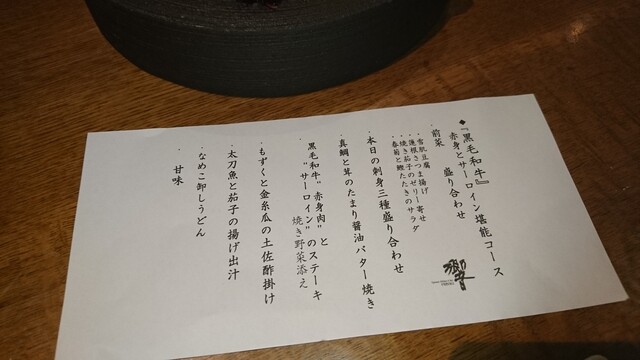 ◆『黒毛和牛』
赤身とサーロイン堪能コース
・前菜　盛り合わせ
・雪肌豆腐
・蓮根さつま揚げ
・焼き茄子のゼリー寄せ
・春菊と鰹たたきのサラダ
・本日の刺身三種盛り合わせ
・真鯛と茸のたまり醤油バター焼き
・黒毛和牛“赤身肉”と
“サーロイン”のステーキ
焼き野菜添え
・もずくと金糸瓜の土佐酢掛け
・太刀魚と茄子の揚げ出汁
・なめこ卸しうどん
・甘味
響